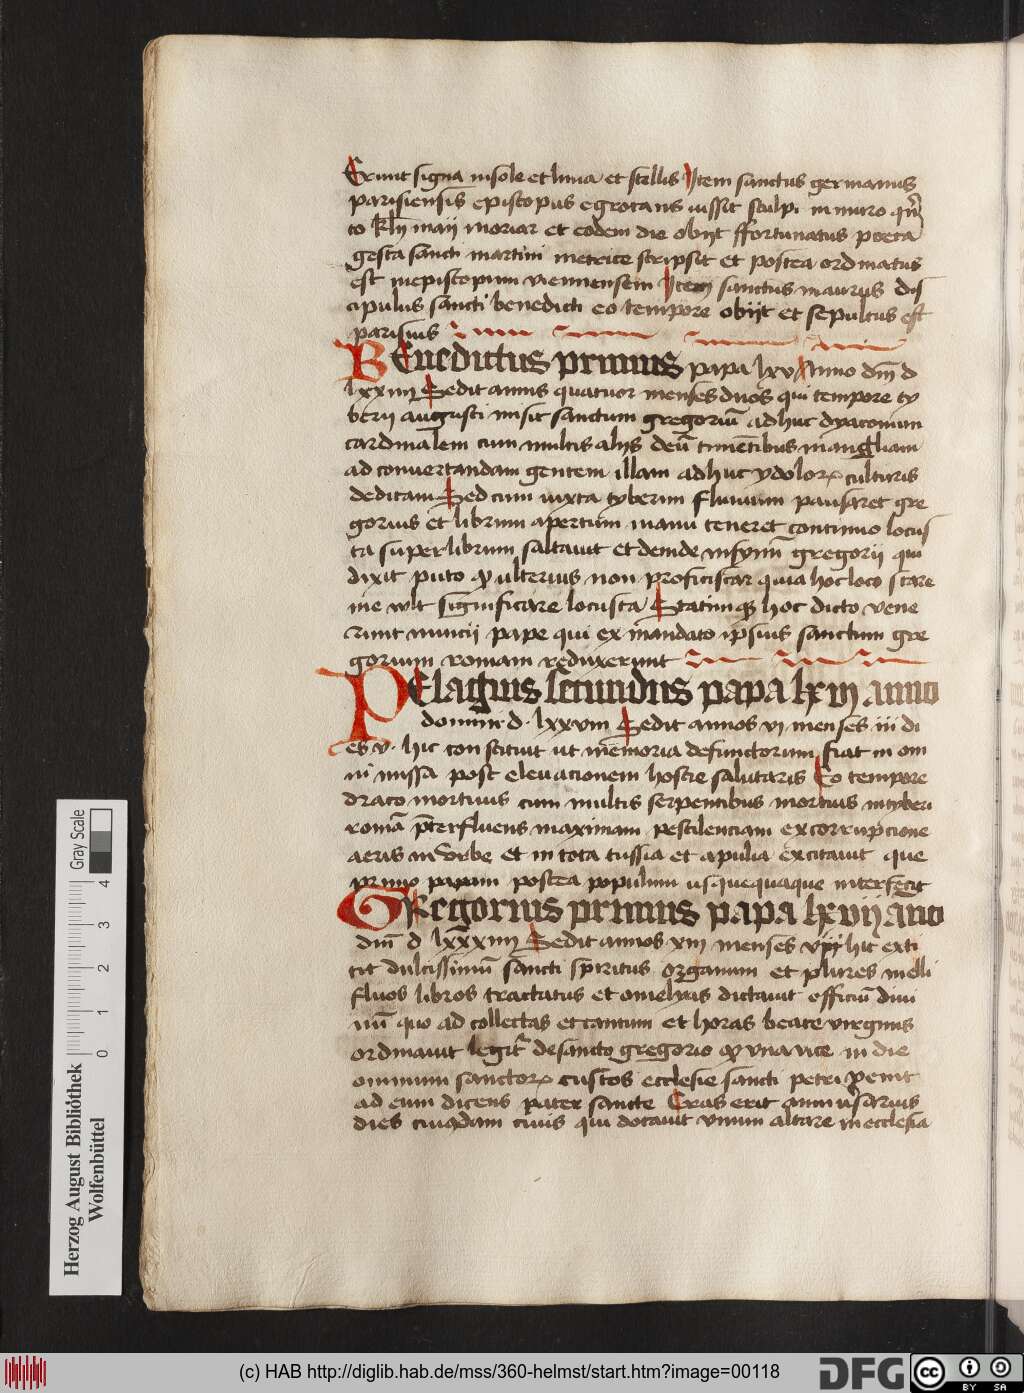 Erunt signa in sole et luna et stellis Item sanctus germanus
parisiensis episcopus egrotans iussit sculpi in muro qn̄
to kl̄n maij moriar et eodem die obijt ffortunatus poeta
gesta sancti martini metrice scripsit et postea ordinatus
est in episcopum viennensem Item sanctus maurus dis
cipulus sancti benedicti eo tempore obijt et sepultus est
parisius
BEnedictus primus papa lxv Anno dn̄i d
lxxiiij Sedit annis quatuor menses duos qui tempore ty
berij augusti misit sanctum gregoriū adhuc dyaconum
cardinalem cum multis alijs deū timētibus in angliam
ad conuertandam gentem illam adhuc ydolorꝝ culturis
deditam Sed cum iuxta tyberim fluuium pausaret gre
gorius et librum apertum manu teneret continuo locus
ta super librum saltauit et deinde in synū gregorij qui
dixit puto ꝙ ulterius non proficiscar quia hoc loco stare
me wlt significare locusta Statimqꝫ hoc dicto vene
runt nuncij pape qui ex mandato ipsius sanctum gre
gorium romam reduxerunt
PElagius secundus papa lxvj anno
domini d lxxviij Sedit annos vj menses iij di
es v hic constituit ut memoria defunctorum fiat in om
ni missa post eleuacionem hostie salutaris Eo tempore
draco mortuus cum multis serpentibus mortuis in tyberi
romā p̄terfluens maximam pestilenciam ex corrupcione
aeris in vrbe et in tota tussia et apulia excitauit que
primo papam postea populum usquequaque interfecit
GRegorius primus papa lxvij anō
dn̄i d lxxxiiij Sedit annos xiij menses vj hic exti
tit dulcissimū sancti spiritus organum et plures melli
fluos libros tractatus et omelyas dictauit officiū diui
nū quo ad collectas et cantum et horas beate virginis
ordinauit legit̉ de sancto gregorio ꝙ vna vice in die
omnium sanctorꝝ custos ecclesie sancti petri venit
ad eum dicens pater sancte Cras erit anniu̅sarius
dies cuiusdam ciuis qui dotauit vnum altare in ecclesia
Gray Scale
4
3
2
1
0
Herzog August Bibliothek
Wolfenbüttel
(c) HAB http://diglib.hab.de/mss/360-helmst/start.htm?image=00118
DFG
cc
BY SA